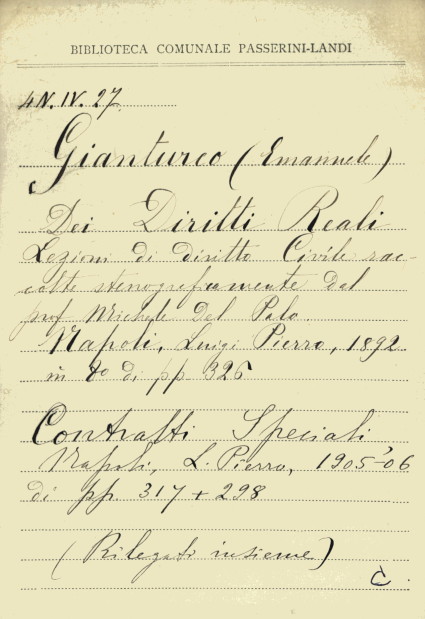 BIBLIOTECA COMUNALE PASSERINI-LANDI
4N.IV.27
Gianturco (Emanuele)
Dei Diritti Reali
Lezioni di diritto Civile rac-
colte stenograficamente dal
prof Michele Del Palo
Napoli, Luigi Pierro, 1892
in 8o di pp 325
Contratti Speciali
Napoli, L. Pierro, 1905-'06
di pp. 317 + 298
(Rilegati insieme)
C.